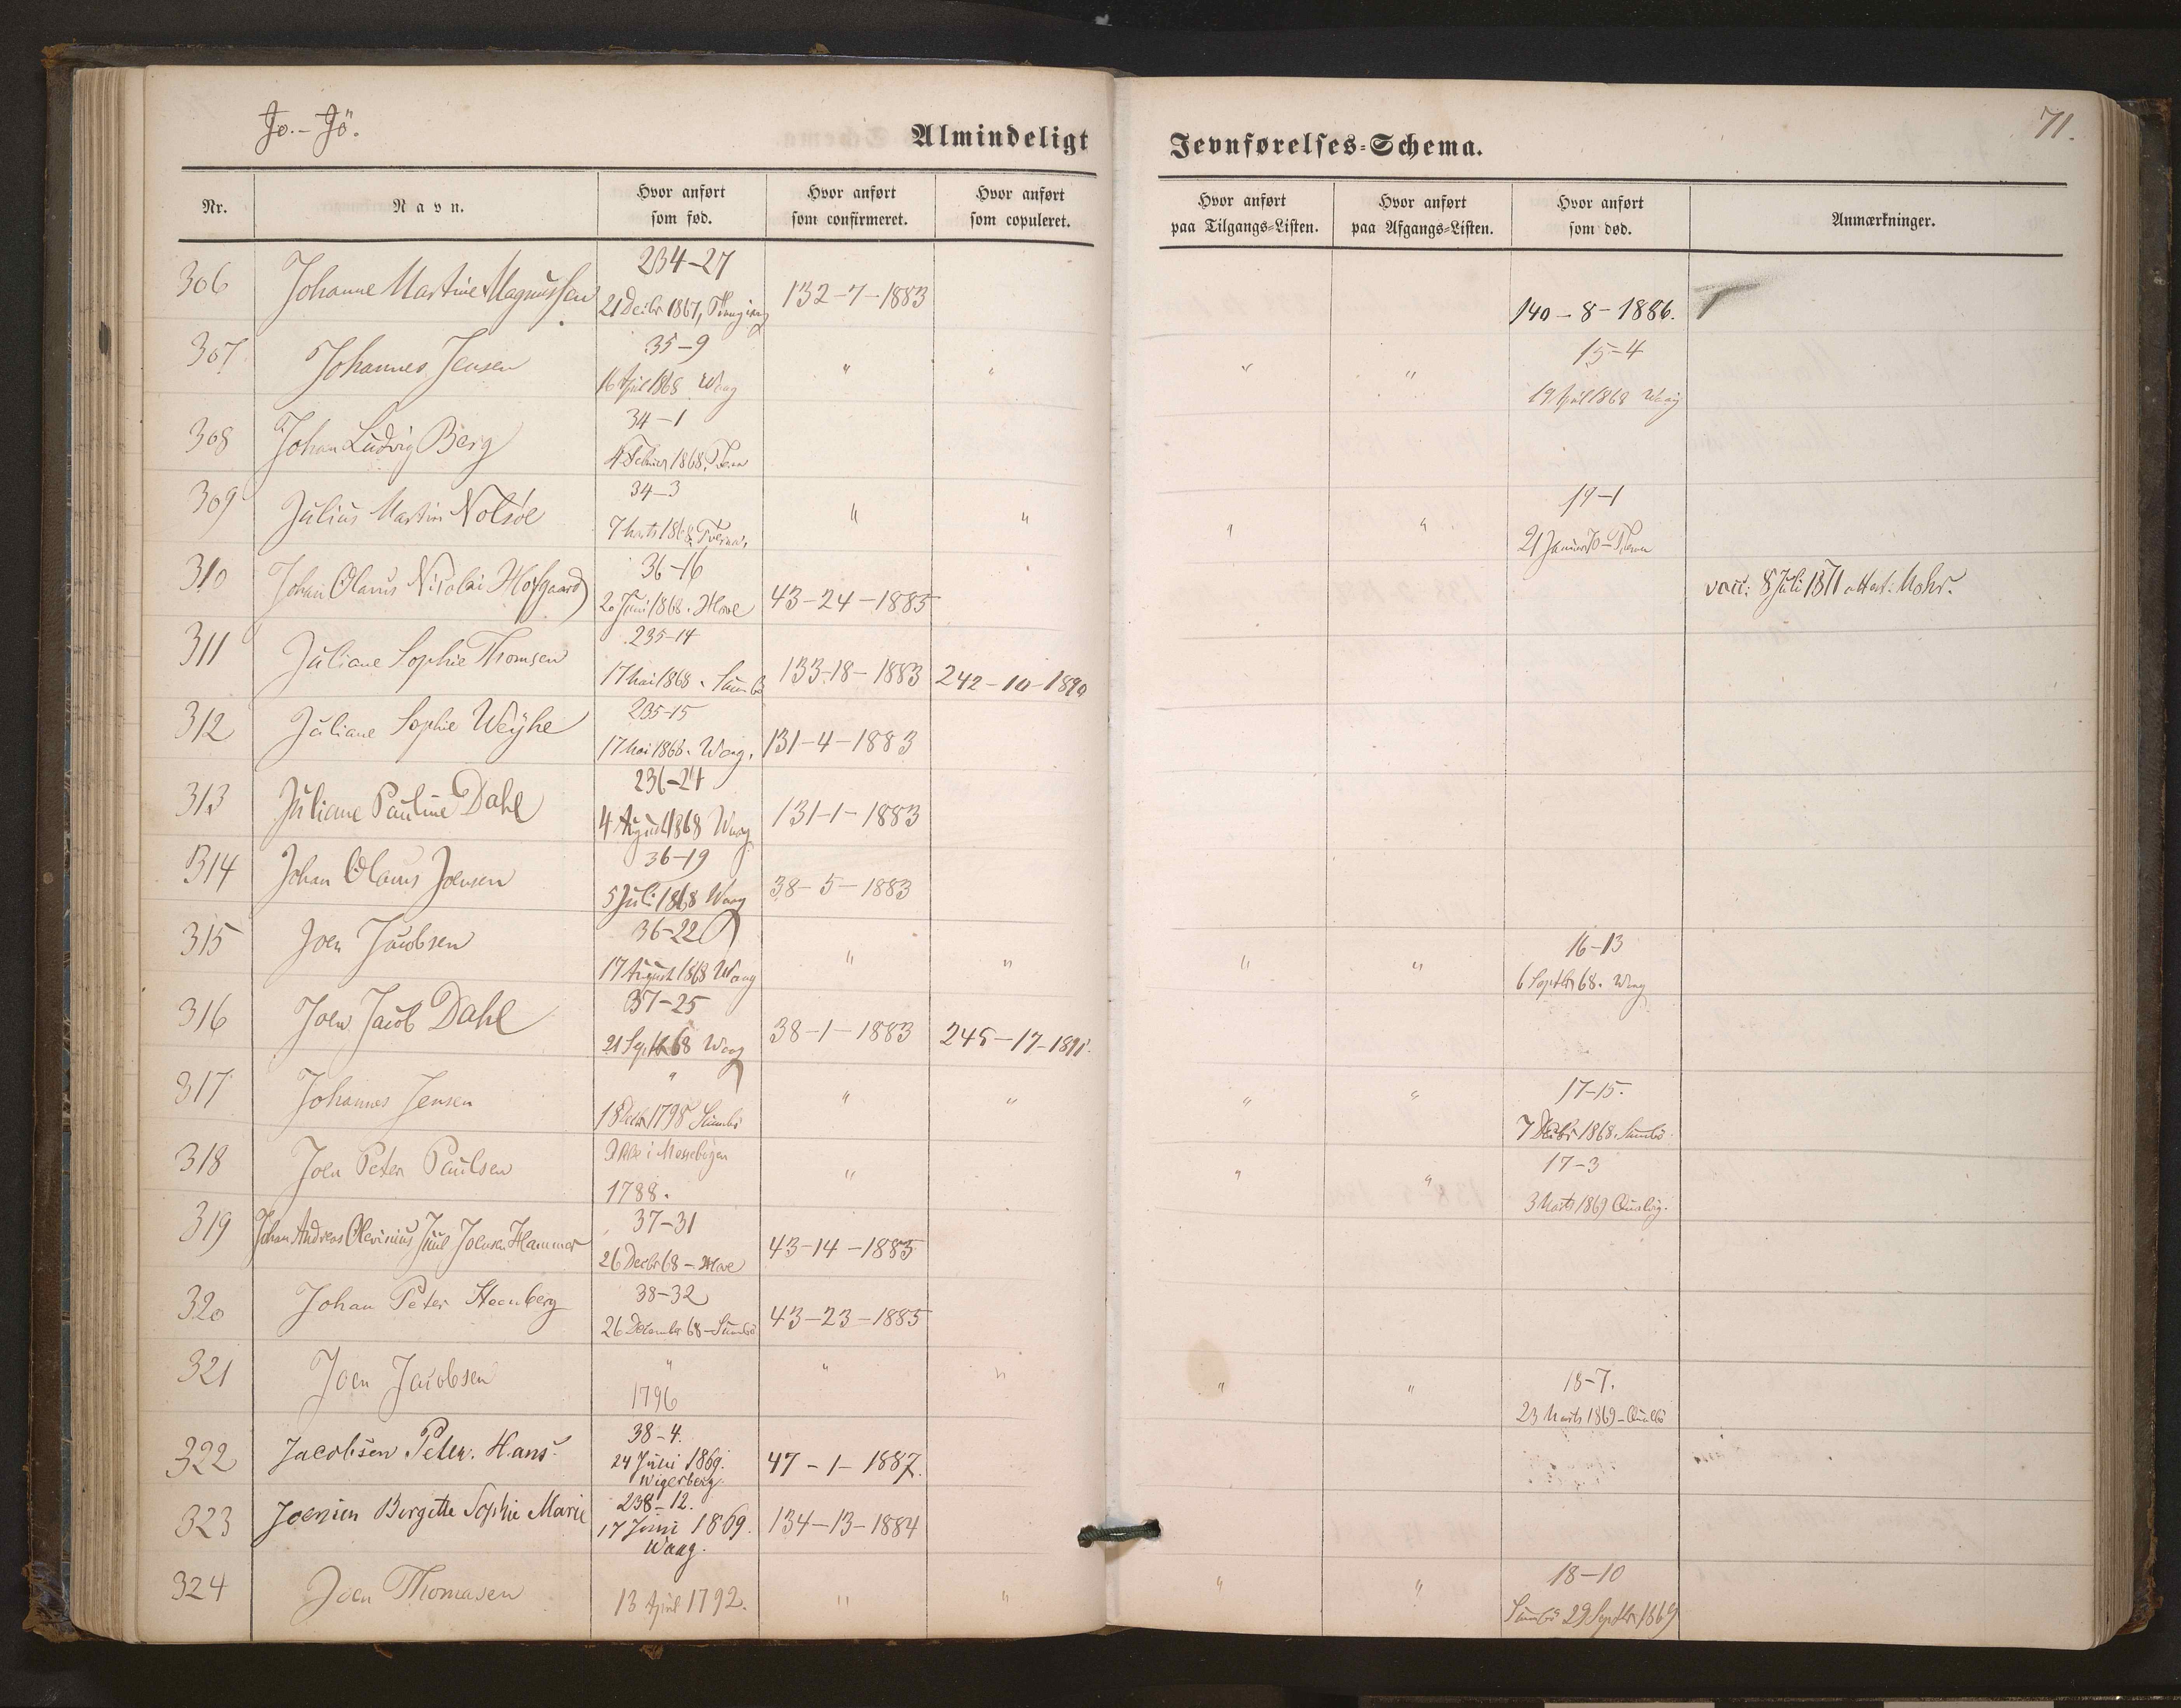 Jo.-Jö.
71.
Almindeligt Jevnførelses-Schema.
Nr. Navn. Hvor anført som fød. Hvor anført som confirmeret. Hvor anført som copuleret. Hvor anført paa Tilgangs-Listen. Hvor anført paa Afgangs-Listen. Hvor anført som død. Anmærkninger.
306 Johanne Martine Magnussen 234-27 132-7-1883 140-8-1886.
21 Decbr 1867,
307 Johannes Jensen 35-9 " " " " 15-4
16 April 1868 Waag 19 April 1868 Waag
308 Johan Ludvig Berg 34-1
4 Februar 1868,
309 Julius Martin Nolsöe 34-3 " " " " 19-1
7 Marts 1868, 21 Januar 70
310 Johan Olavus Nicolai Hofgaard 36-16 43-24-1885 vacc: 8 Juli 1871 attest: Mohr.
20 Juni 1868. Hove
311 Juliane Sophie Thomsen 235-14 133-18-1883 242-10-1890
17 Mai 1868. Sumbö
312 Juliane Sophie Weyhe 235-15 131-4-1883
17 Mai 1868. Waag.
313 Juliane Pauline Dahl 236-24 131-1-1883
4 August 1868 Waag
314 Johan Olaus Joensen 36-19 38-5-1883
5 Juli 1868 Waag
315 Joen Jacobsen 36-22 " " " " 16-13
17 August 1868 Waag 6 Septbr 68. Waag
316 Joen Jacob Dahl 37-25 38-1-1883 245-17-1891.
21 Sept 68 Waag
317 Johannes Jensen " " " " " 17-15.
1798 Sumbö 7 Decbr 1868. Sumbö
318 Joen Peter Paulsen Ikke i Messebogen " " " 17-3
1788. 3 Marts 1869
319 Johan Andreas Olevinius Juul Joensen Hammer 37-31 43-14-1885
26 Decbr 68 - Hove
320 Johan Peter Steenberg 38-32 43-23-1885
26 December 68 - Sumbö
321 Joen Jacobsen " " " " " 18-7.
1796 23 Marts 1869 -
322 Jacobsen Peter. Hans 38-4. 47-1-1887.
24 Juni 1869.
Wigerberg.
323 Joensen Birgitte Sophie Marie 238-12. 134-13-1884
17 Juni 1869.
Waag.
324 Joen Thomasen 13 April 1792. " " " " 18-10
Sumbö 29 Septbr 1869